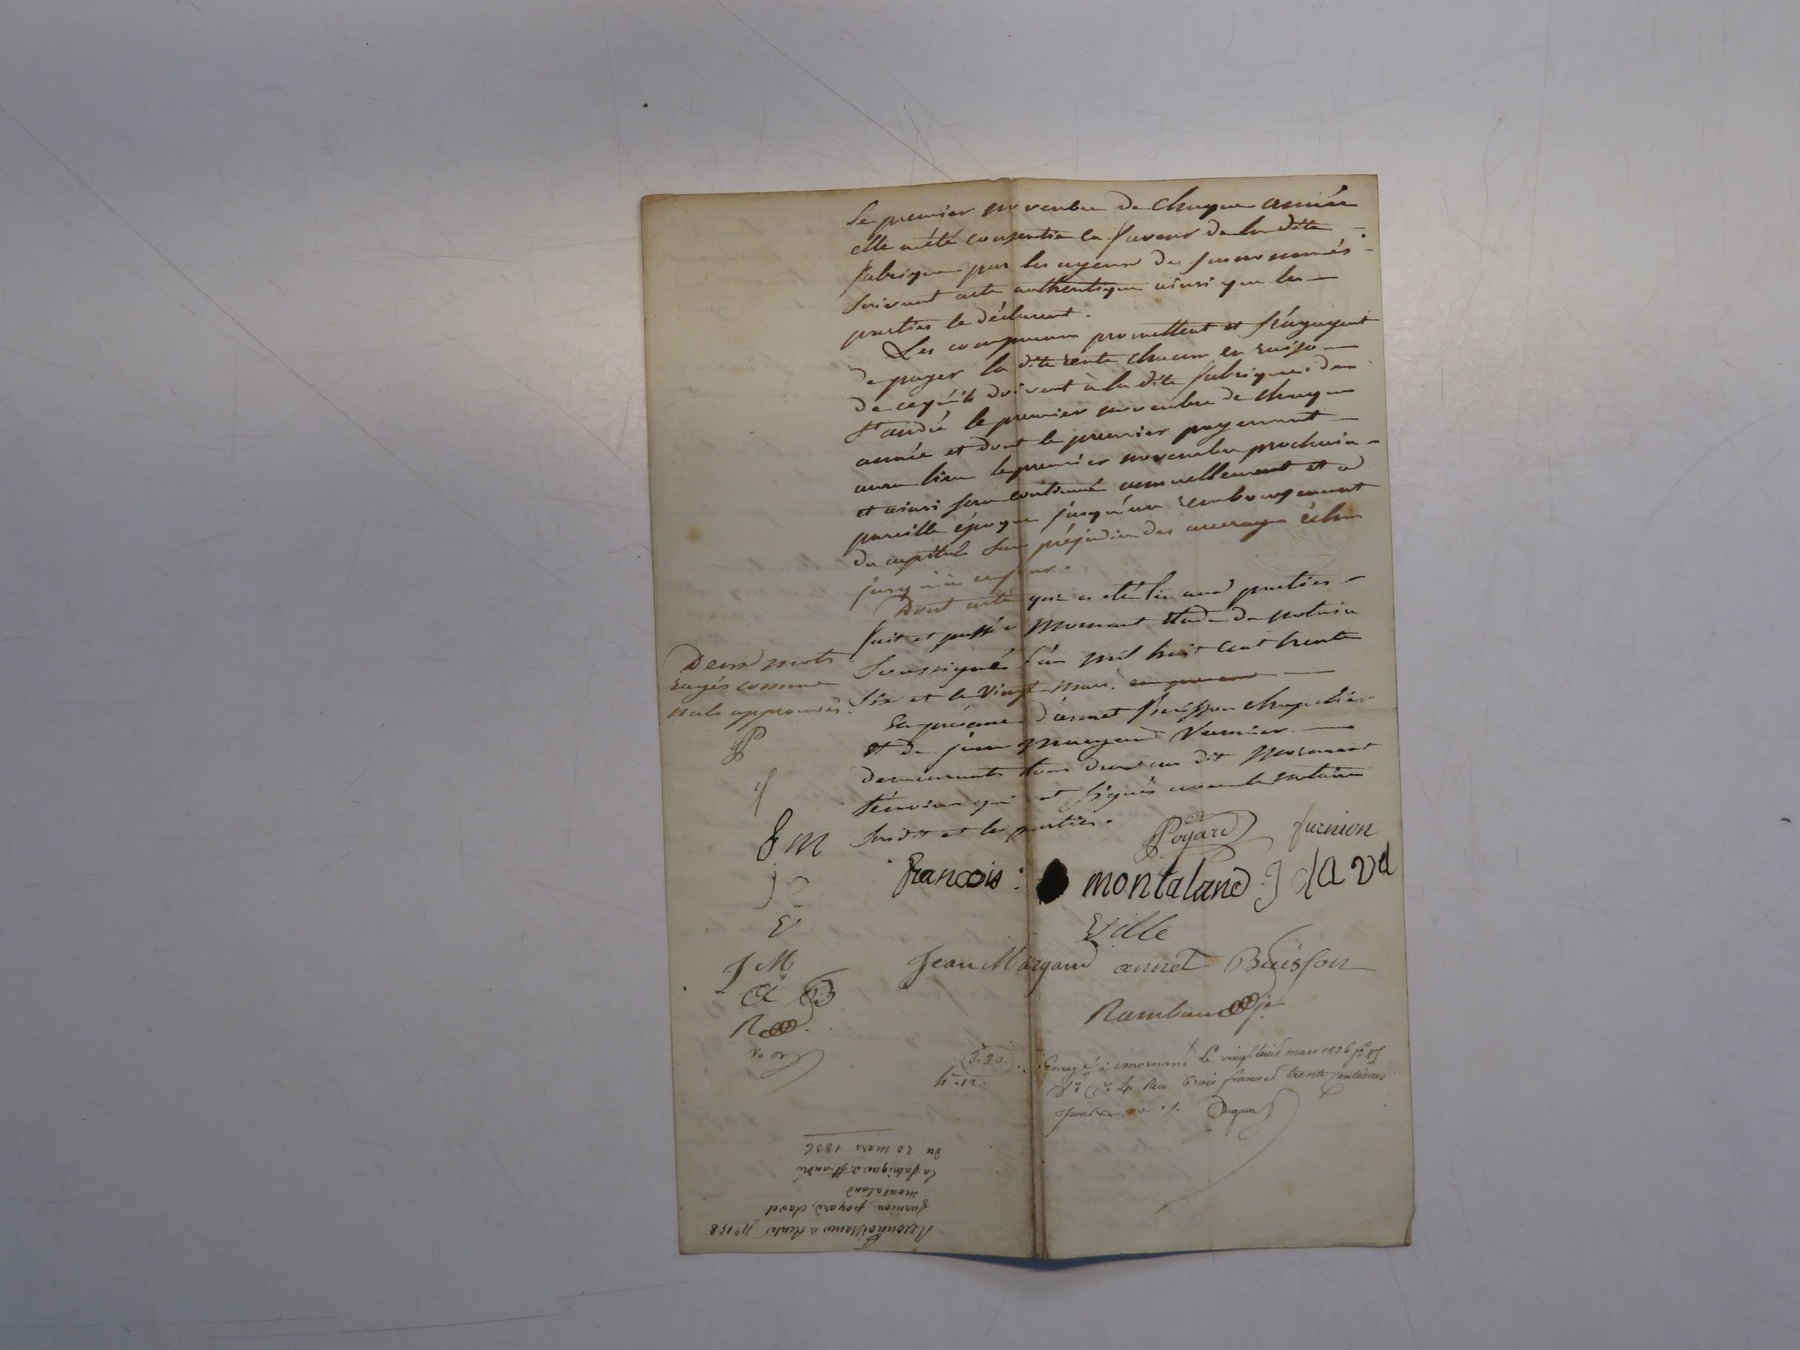 le premier novembre de chaque année
elle a été consentie en faveur de la dite
fabrique par les ayeux des susnommés
suivant acte authentique ainsi que les
parties le déclarent.
Les comparans promettent et s'engagent
de payer la dite rente chacun en raison
de ce qu'ils doivent à la dite fabrique de
St andré le premier novembre de chaque
année et dont le premier payement
aura lieu le premier novembre prochain
et ainsi sera continué annuellement et a
pareille époque jusqu'au remboursement
du capital sans préjudice des arrerages échus
jusqu'à ce jour.
Dont acte qui a été lu aux parties
fait et passé a Mornant étude du notaire
soussigné l'an mil huit cent trente
six et le vingt mars. en presence
En présence d'annet Buisson chapelier
et de jean Margand
demeurants tous deux au dit Mornant
témoins qui ont signés avec le notaire
susdit et les parties.
Deux mots
rayés comme
nuls approuvés.
P
f
f m
J C
V
J M
a B
R
Poyard furnion
francois : montaland J clavel
Ville
Jean Margand annet Buisson
Rambaud
3.30.
Enregé à mornant Le vingt huit mars 1836
Reçu trois francs trente centimes
Reconnoissance de Rente N° 158
furnion, poyard, clavel
montaland
La fabrique de St andré
du 20 mars 1836